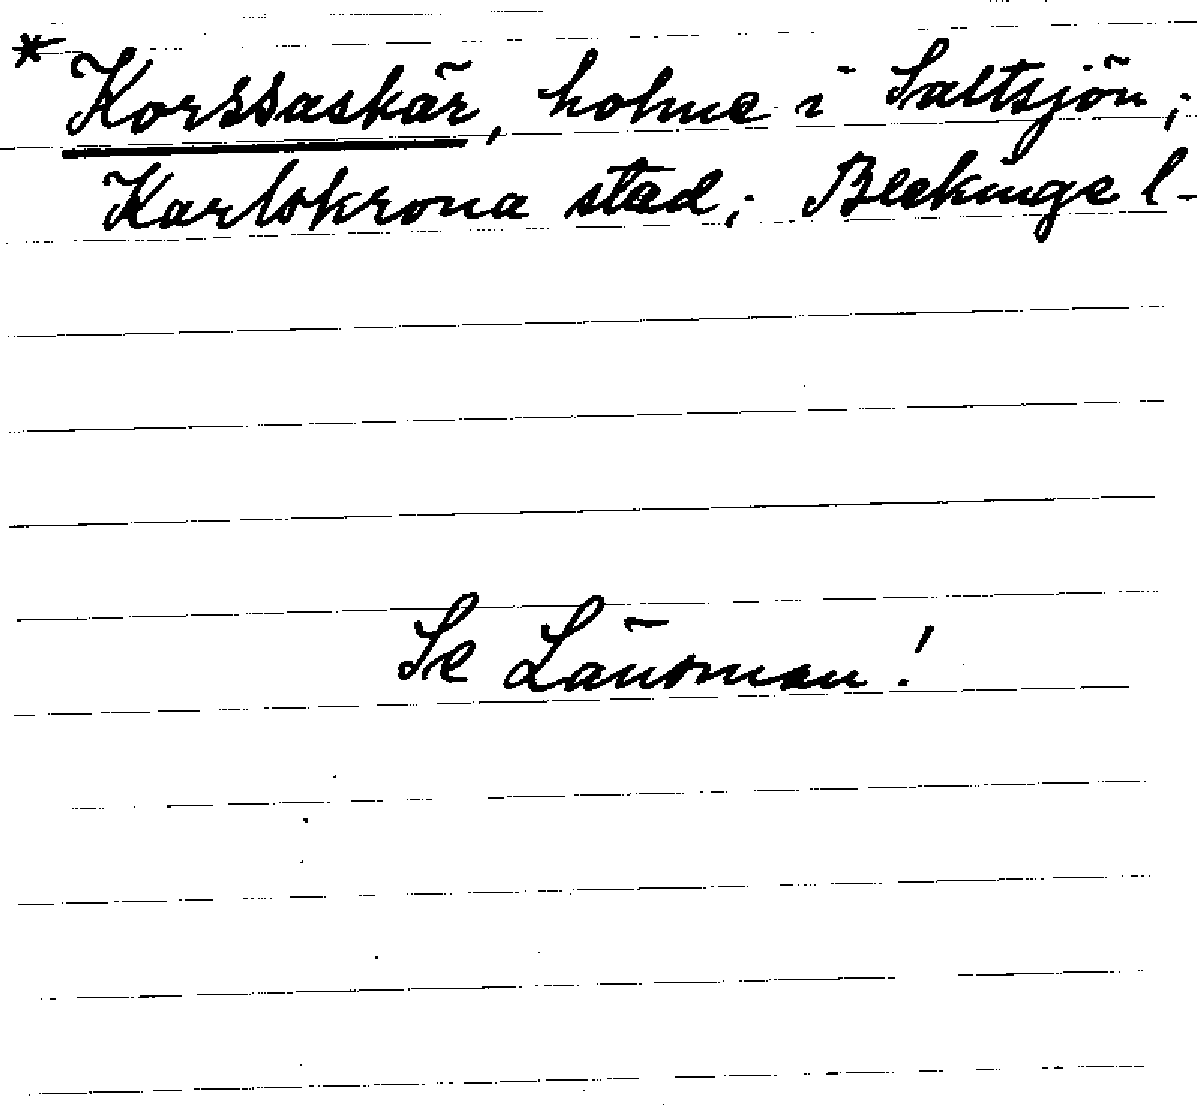 * Korssaskär, holme i Saltsjön;
Karlskrona stad; Blekinge l-
Se Länsman!